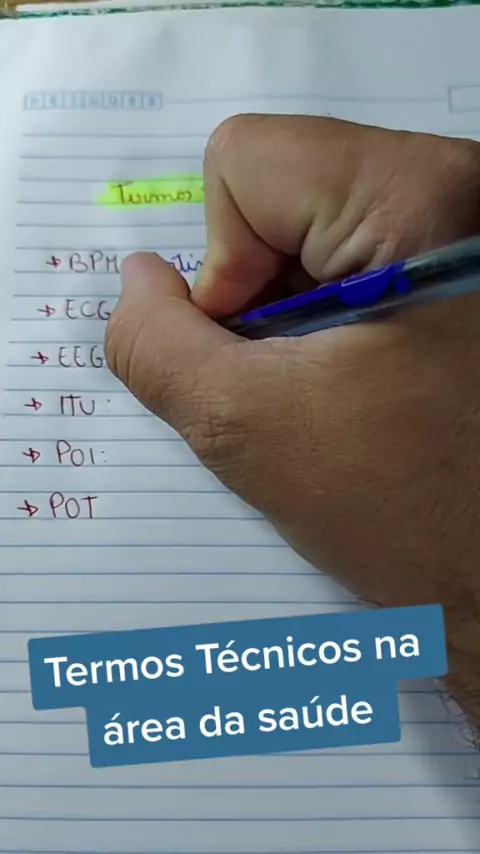 Termos
→ BPM
→ ECG
→ EEG
→ ITU:
→ POI:
→ POT
Termos Técnicos na
área da saúde